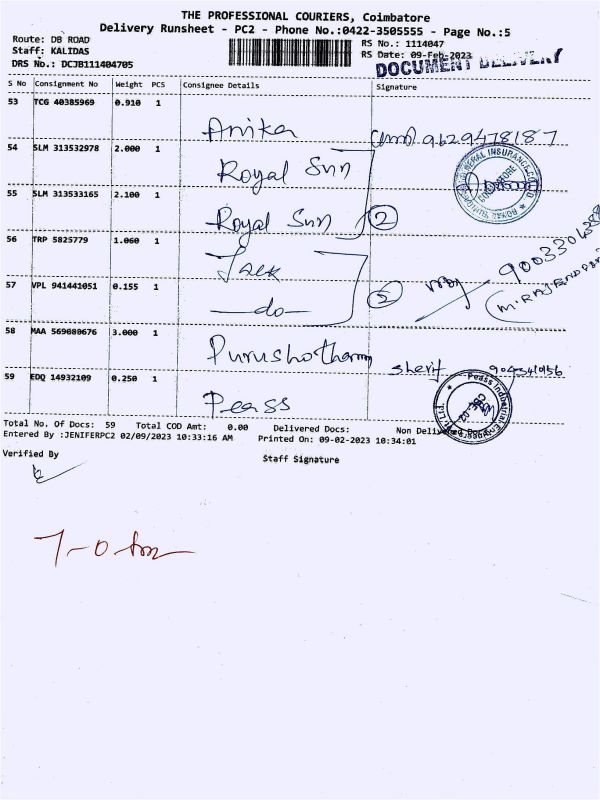 THE PROFESSIONAL COURIERS, Coimbatore
Delivery Runsheet - PC2 - Phone No.:0422-3505555 - Page No.:5
Route: DB ROAD
RS No.: 1114047
Staff: KALIDAS
RS Date: 09-Feb-2023
DRS No.: DCJB111404705
DOCUMENT DELIVERY
S No Consignment No Weight PCS Consignee Details Signature
53 TCG 40385969 0.910 1
Anika 9629478187
54 SLM 313532978 2.000 1
Royal Sun
55 SLM 313533165 2.100 1
Royal Sun 2
56 TRP 5825779 1.060 1
57 VPL 941441051 0.155 1
do
58 MAA 569080676 3.000 1
Purushotham
59 EDQ 14932109 0.250 1
Peass
Total No. Of Docs: 59 Total COD Amt: 0.00 Delivered Docs: Non Delivered Docs:
Entered By :JENIFERPC2 02/09/2023 10:33:16 AM Printed On: 09-02-2023 10:34:01
Verified By
Staff Signature